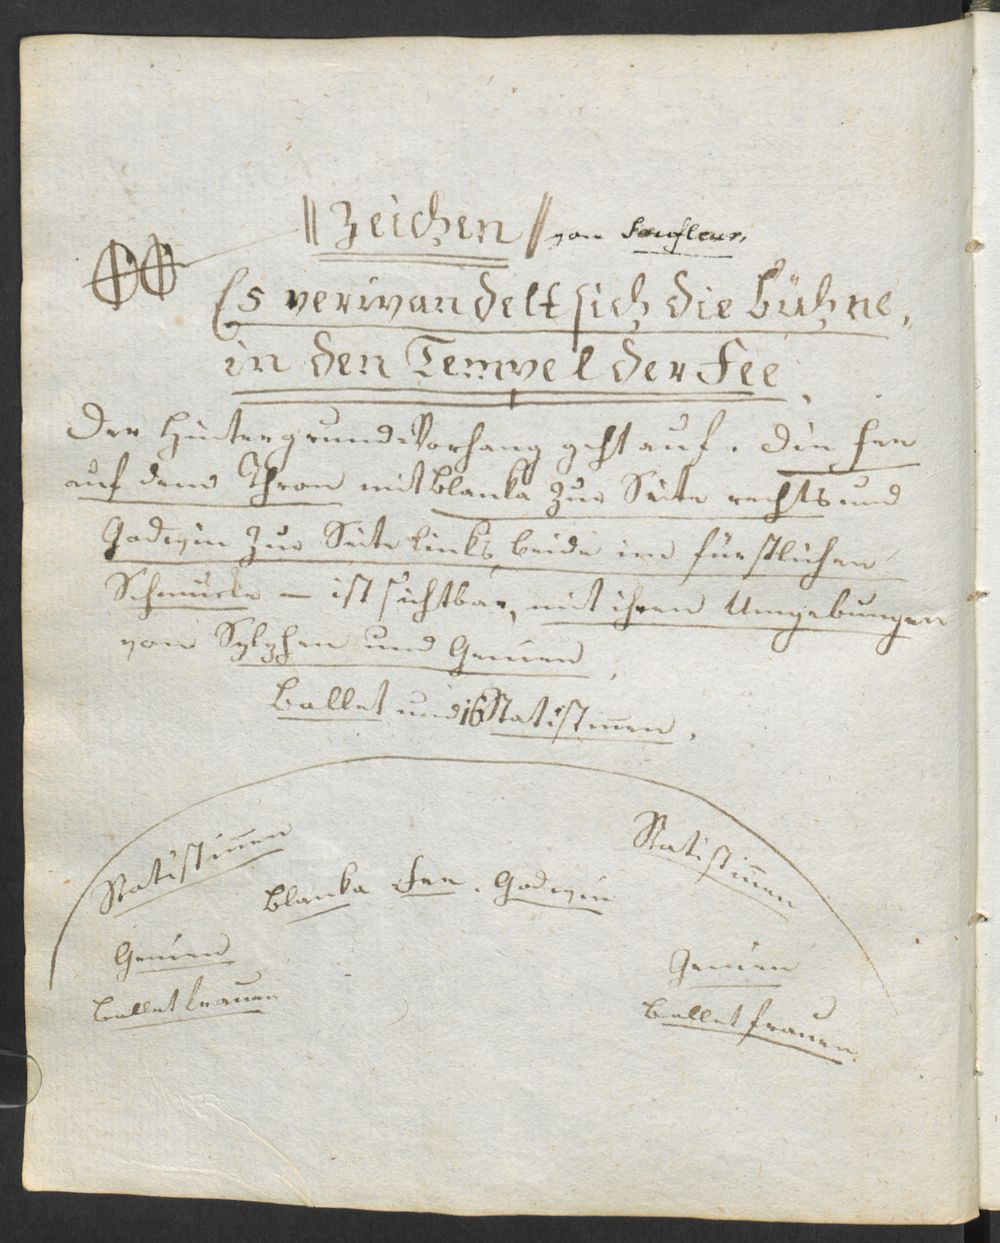 || Zeichen || von Soufleur.
Es verwandelt sich die Bühne,
in den Tempel der Fee.
Der Hintergrunds Vorhang geht auf. Die Fee
auf dem Thron mit Blanka zur Seite rechts und
Godwin zur Seite links, beide im fürstlichen
Schmucke – ist sichtbar, mit ihren Umgebungen
von Sylphen und Genien.
Ballet und 16 Statistinen.
Statistinen
Statistinen
Blanka Fee. Godwin
Genien
Genien
Balletfrauen
Balletfrauen.